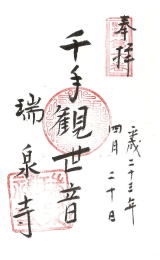 奉拝
平成二十三年
四月二十日
千手観世音
瑞泉寺